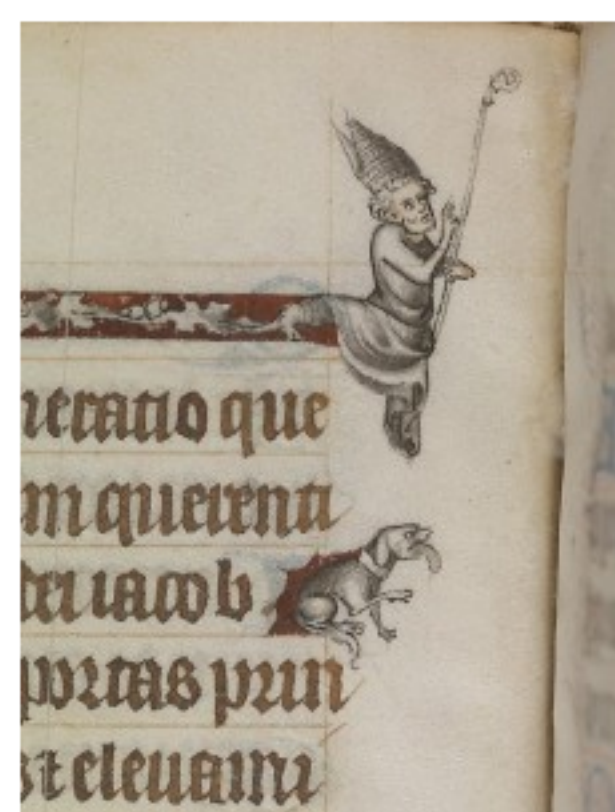 neratio que
m querenti
dei iacob
portas prin
st eleuami